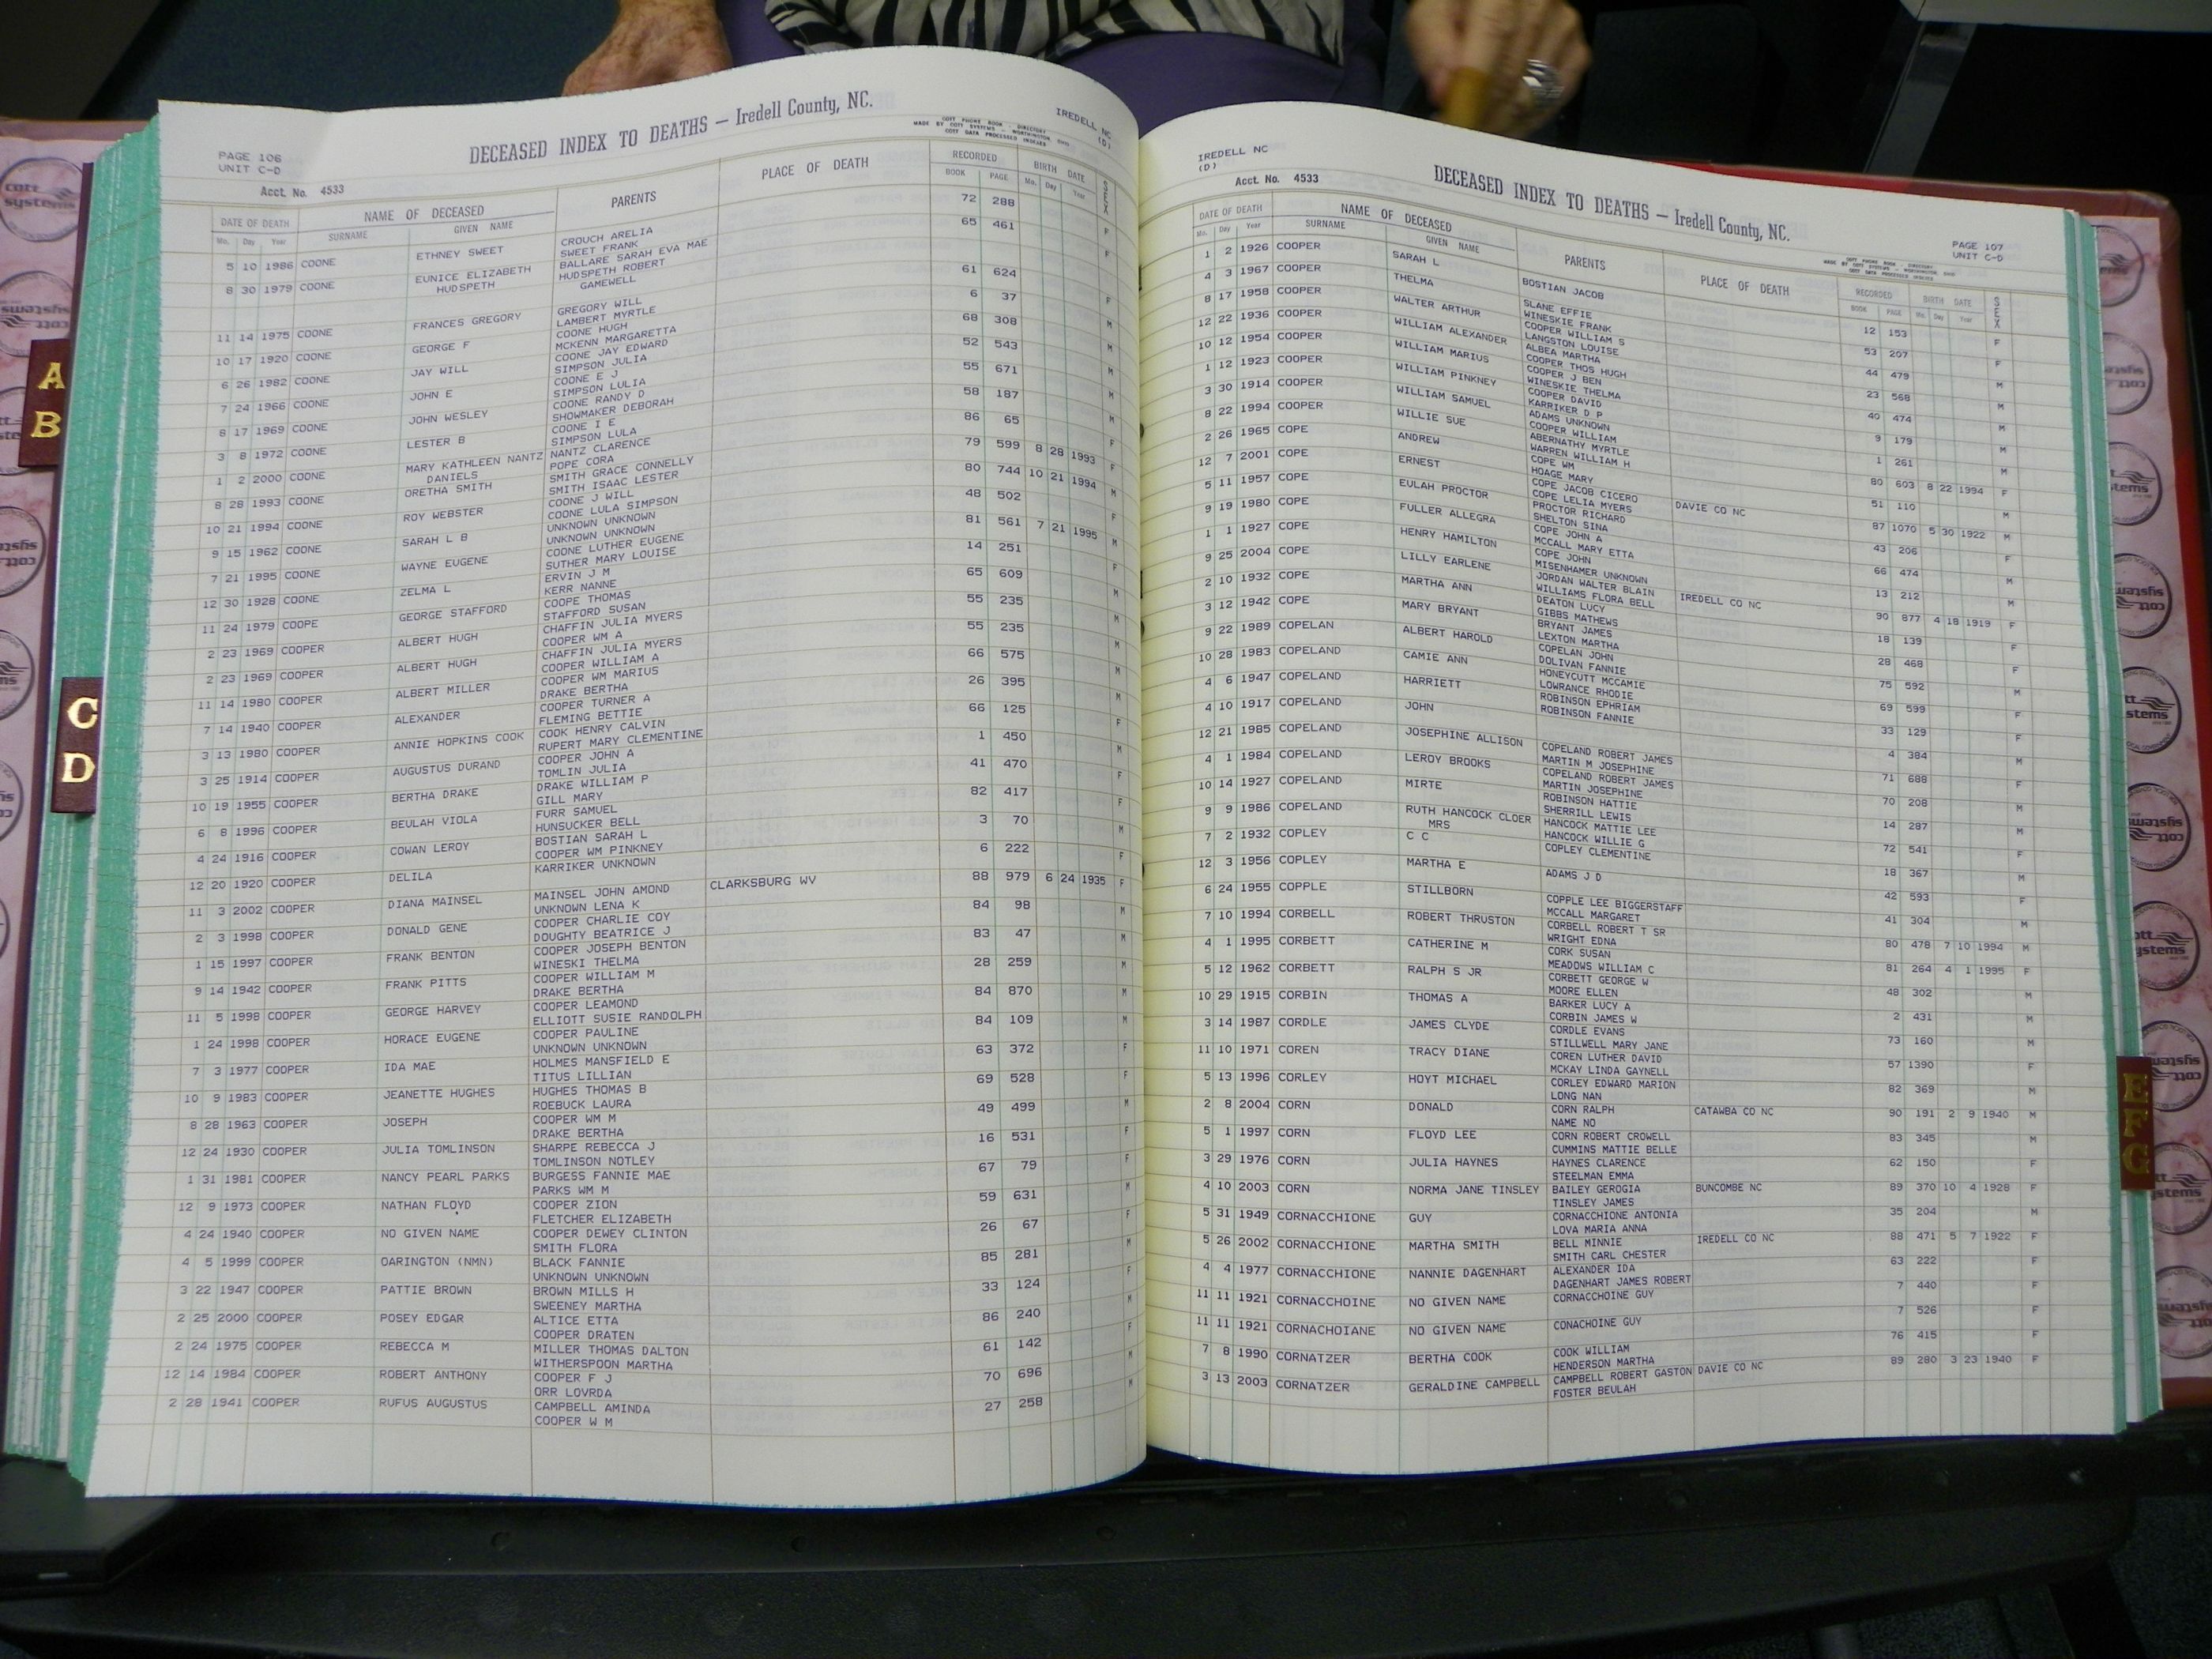 PAGE 106
UNIT C-D
Acct. No. 4533
DECEASED INDEX TO DEATHS — Iredell County, NC.
COTT PHONE BOOK - DIRECTORY
MADE BY COTT SYSTEMS - WORTHINGTON, OHIO
COTT DATA PROCESSED INDEXES
IREDELL NC
(D)
DATE OF DEATH NAME OF DECEASED PARENTS PLACE OF DEATH RECORDED BIRTH DATE SEX
Mo. Day Year SURNAME GIVEN NAME BOOK PAGE Mo. Day Year
5 10 1986 COONE ETHNEY SWEET CROUCH ARELIA 72 288 F
SWEET FRANK
8 30 1979 COONE EUNICE ELIZABETH BALLARE SARAH EVA MAE 65 461 F
HUDSPETH HUDSPETH ROBERT
GAMEWELL
11 14 1975 COONE FRANCES GREGORY GREGORY WILL 61 624 F
LAMBERT MYRTLE
10 17 1920 COONE GEORGE F COONE HUGH 6 37 M
MCKENN MARGARETTA
6 26 1982 COONE JAY WILL COONE JAY EDWARD 68 308 M
SIMPSON JULIA
7 24 1966 COONE JOHN E COONE E J 52 543 M
SIMPSON LULIA
8 17 1969 COONE JOHN WESLEY COONE RANDY D 55 671 M
SHOWMAKER DEBORAH
3 8 1972 COONE LESTER B COONE I E 58 187 M
SIMPSON LULA
1 2 2000 COONE MARY KATHLEEN NANTZ NANTZ CLARENCE 86 65 F
DANIELS POPE CORA
8 28 1993 COONE ORETHA SMITH SMITH GRACE CONNELLY 79 599 8 28 1993 F
SMITH ISAAC LESTER
10 21 1994 COONE ROY WEBSTER COONE J WILL 80 744 10 21 1994 M
COONE LULA SIMPSON
9 15 1962 COONE SARAH L B UNKNOWN UNKNOWN 48 502 F
UNKNOWN UNKNOWN
7 21 1995 COONE WAYNE EUGENE COONE LUTHER EUGENE 81 561 7 21 1995 M
SUTHER MARY LOUISE
12 30 1928 COONE ZELMA L ERVIN J M 14 251 F
KERR NANNE
11 24 1979 COOPE GEORGE STAFFORD COOPE THOMAS 65 609 M
STAFFORD SUSAN
2 23 1969 COOPER ALBERT HUGH CHAFFIN JULIA MYERS 55 235 M
COOPER WM A
2 23 1969 COOPER ALBERT HUGH CHAFFIN JULIA MYERS 55 235 M
COOPER WILLIAM A
11 14 1980 COOPER ALBERT MILLER COOPER WM MARIUS 66 575 M
DRAKE BERTHA
7 14 1940 COOPER ALEXANDER COOPER TURNER A 26 395 M
FLEMING BETTIE
3 13 1980 COOPER ANNIE HOPKINS COOK COOK HENRY CALVIN 66 125 F
RUPERT MARY CLEMENTINE
3 25 1914 COOPER AUGUSTUS DURAND COOPER JOHN A 1 450 M
TOMLIN JULIA
10 19 1955 COOPER BERTHA DRAKE DRAKE WILLIAM P 41 470 F
GILL MARY
6 8 1996 COOPER BEULAH VIOLA FURR SAMUEL 82 417 F
HUNSUCKER BELL
4 24 1916 COOPER COWAN LEROY BOSTIAN SARAH L 3 70 M
COOPER WM PINKNEY
12 20 1920 COOPER DELILA KARRIKER UNKNOWN 6 222 F
11 3 2002 COOPER DIANA MAINSEL MAINSEL JOHN AMOND CLARKSBURG WV 88 979 6 24 1935 F
UNKNOWN LENA K
2 3 1998 COOPER DONALD GENE COOPER CHARLIE COY 84 98 M
DOUGHTY BEATRICE J
1 15 1997 COOPER FRANK BENTON COOPER JOSEPH BENTON 83 47 M
WINESKI THELMA
9 14 1942 COOPER FRANK PITTS COOPER WILLIAM M 28 259 M
DRAKE BERTHA
11 5 1998 COOPER GEORGE HARVEY COOPER LEAMOND 84 870 M
ELLIOTT SUSIE RANDOLPH
1 24 1998 COOPER HORACE EUGENE COOPER PAULINE 84 109 M
UNKNOWN UNKNOWN
7 3 1977 COOPER IDA MAE HOLMES MANSFIELD E 63 372 F
TITUS LILLIAN
10 9 1983 COOPER JEANETTE HUGHES HUGHES THOMAS B 69 528 F
ROEBUCK LAURA
8 28 1963 COOPER JOSEPH COOPER WM M 49 499 M
DRAKE BERTHA
12 24 1930 COOPER JULIA TOMLINSON SHARPE REBECCA J 16 531 F
TOMLINSON NOTLEY
1 31 1981 COOPER NANCY PEARL PARKS BURGESS FANNIE MAE 67 79 F
PARKS WM M
12 9 1973 COOPER NATHAN FLOYD COOPER ZION 59 631 M
FLETCHER ELIZABETH
4 24 1940 COOPER NO GIVEN NAME COOPER DEWEY CLINTON 26 67 F
SMITH FLORA
4 5 1999 COOPER OARINGTON (NMN) BLACK FANNIE 85 281 M
UNKNOWN UNKNOWN
3 22 1947 COOPER PATTIE BROWN BROWN MILLS H 33 124 F
SWEENEY MARTHA
2 25 2000 COOPER POSEY EDGAR ALTICE ETTA 86 240 M
COOPER DRATEN
2 24 1975 COOPER REBECCA M MILLER THOMAS DALTON 61 142 F
WITHERSPOON MARTHA
12 14 1984 COOPER ROBERT ANTHONY COOPER F J 70 696 M
ORR LOVRDA
2 28 1941 COOPER RUFUS AUGUSTUS CAMPBELL AMINDA 27 258 M
COOPER W M
IREDELL NC
(D)
Acct. No. 4533
DECEASED INDEX TO DEATHS — Iredell County, NC.
COTT PHONE BOOK - DIRECTORY
MADE BY COTT SYSTEMS - WORTHINGTON, OHIO
COTT DATA PROCESSED INDEXES
PAGE 107
UNIT C-D
DATE OF DEATH NAME OF DECEASED PARENTS PLACE OF DEATH RECORDED BIRTH DATE SEX
Mo. Day Year SURNAME GIVEN NAME BOOK PAGE Mo. Day Year
1 2 1926 COOPER SARAH L BOSTIAN JACOB 12 153 F
4 3 1967 COOPER THELMA SLANE EFFIE 53 207 F
WINESKIE FRANK
8 17 1958 COOPER WALTER ARTHUR COOPER WILLIAM S 44 479 M
LANGSTON LOUISE
12 22 1936 COOPER WILLIAM ALEXANDER ALBEA MARTHA 23 568 M
COOPER THOS HUGH
10 12 1954 COOPER WILLIAM MARIUS COOPER J BEN 40 474 M
WINESKIE THELMA
1 12 1923 COOPER WILLIAM PINKNEY COOPER DAVID 9 179 M
KARRIKER D P
3 30 1914 COOPER WILLIAM SAMUEL ADAMS UNKNOWN 1 261 M
COOPER WILLIAM
8 22 1994 COOPER WILLIE SUE ABERNATHY MYRTLE 80 603 8 22 1994 F
WARREN WILLIAM H
2 26 1965 COPE ANDREW COPE WM 51 110 M
HOAGE MARY
12 7 2001 COPE ERNEST COPE JACOB CICERO DAVIE CO NC 87 1070 5 30 1922 M
COPE LELIA MYERS
5 11 1957 COPE EULAH PROCTOR PROCTOR RICHARD 43 206 F
SHELTON SINA
9 19 1980 COPE FULLER ALLEGRA COPE JOHN A 66 474 M
MCCALL MARY ETTA
1 1 1927 COPE HENRY HAMILTON COPE JOHN 13 212 M
MISENHAMER UNKNOWN
9 25 2004 COPE LILLY EARLENE JORDAN WALTER BLAIN IREDELL CO NC 90 877 4 18 1919 F
WILLIAMS FLORA BELL
2 10 1932 COPE MARTHA ANN DEATON LUCY 18 139 F
GIBBS MATHEWS
3 12 1942 COPE MARY BRYANT BRYANT JAMES 28 468 F
LEXTON MARTHA
9 22 1989 COPELAN ALBERT HAROLD COPELAN JOHN 75 592 M
DOLIVAN FANNIE
10 28 1983 COPELAND CAMIE ANN HONEYCUTT MCCAMIE 69 599 F
LOWRANCE RHODIE
4 6 1947 COPELAND HARRIETT ROBINSON EPHRIAM 33 129 F
ROBINSON FANNIE
4 10 1917 COPELAND JOHN 4 384 M
12 21 1985 COPELAND JOSEPHINE ALLISON COPELAND ROBERT JAMES 71 688 F
MARTIN M JOSEPHINE
4 1 1984 COPELAND LEROY BROOKS COPELAND ROBERT JAMES 70 208 M
MARTIN JOSEPHINE
10 14 1927 COPELAND MIRTE ROBINSON HATTIE 14 287 M
SHERRILL LEWIS
9 9 1986 COPELAND RUTH HANCOCK CLOER HANCOCK MATTIE LEE 72 541 F
MRS HANCOCK WILLIE G
7 2 1932 COPLEY C C COPLEY CLEMENTINE 18 367 M
12 3 1956 COPLEY MARTHA E ADAMS J D 42 593 F
6 24 1955 COPPLE STILLBORN COPPLE LEE BIGGERSTAFF 41 304 M
MCCALL MARGARET
7 10 1994 CORBELL ROBERT THRUSTON CORBELL ROBERT T SR 80 478 7 10 1994 M
WRIGHT EDNA
4 1 1995 CORBETT CATHERINE M CORK SUSAN 81 264 4 1 1995 F
MEADOWS WILLIAM C
5 12 1962 CORBETT RALPH S JR CORBETT GEORGE W 48 302 M
MOORE ELLEN
10 29 1915 CORBIN THOMAS A BARKER LUCY A 2 431 M
CORBIN JAMES W
3 14 1987 CORDLE JAMES CLYDE CORDLE EVANS 73 160 M
STILLWELL MARY JANE
11 10 1971 COREN TRACY DIANE COREN LUTHER DAVID 57 1390 F
MCKAY LINDA GAYNELL
5 13 1996 CORLEY HOYT MICHAEL CORLEY EDWARD MARION 82 369 M
LONG NAN
2 8 2004 CORN DONALD CORN RALPH CATAWBA CO NC 90 191 2 9 1940 M
NAME NO
5 1 1997 CORN FLOYD LEE CORN ROBERT CROWELL 83 345 M
CUMMINS MATTIE BELLE
3 29 1976 CORN JULIA HAYNES HAYNES CLARENCE 62 150 F
STEELMAN EMMA
4 10 2003 CORN NORMA JANE TINSLEY BAILEY GEROGIA BUNCOMBE NC 89 370 10 4 1928 F
TINSLEY JAMES
5 31 1949 CORNACCHIONE GUY CORNACCHIONE ANTONIA 35 204 M
LOVA MARIA ANNA
5 26 2002 CORNACCHIONE MARTHA SMITH BELL MINNIE IREDELL CO NC 88 471 5 7 1922 F
SMITH CARL CHESTER
4 4 1977 CORNACCHIONE NANNIE DAGENHART ALEXANDER IDA 63 222 F
DAGENHART JAMES ROBERT
11 11 1921 CORNACCHOINE NO GIVEN NAME CORNACCHOINE GUY 7 440 F
11 11 1921 CORNACHOIANE NO GIVEN NAME CONACHOINE GUY 7 526 F
7 8 1990 CORNATZER BERTHA COOK COOK WILLIAM 76 415 F
HENDERSON MARTHA
3 13 2003 CORNATZER GERALDINE CAMPBELL CAMPBELL ROBERT GASTON DAVIE CO NC 89 280 3 23 1940 F
FOSTER BEULAH
A
B
C
D
E
F
G
cott
systems